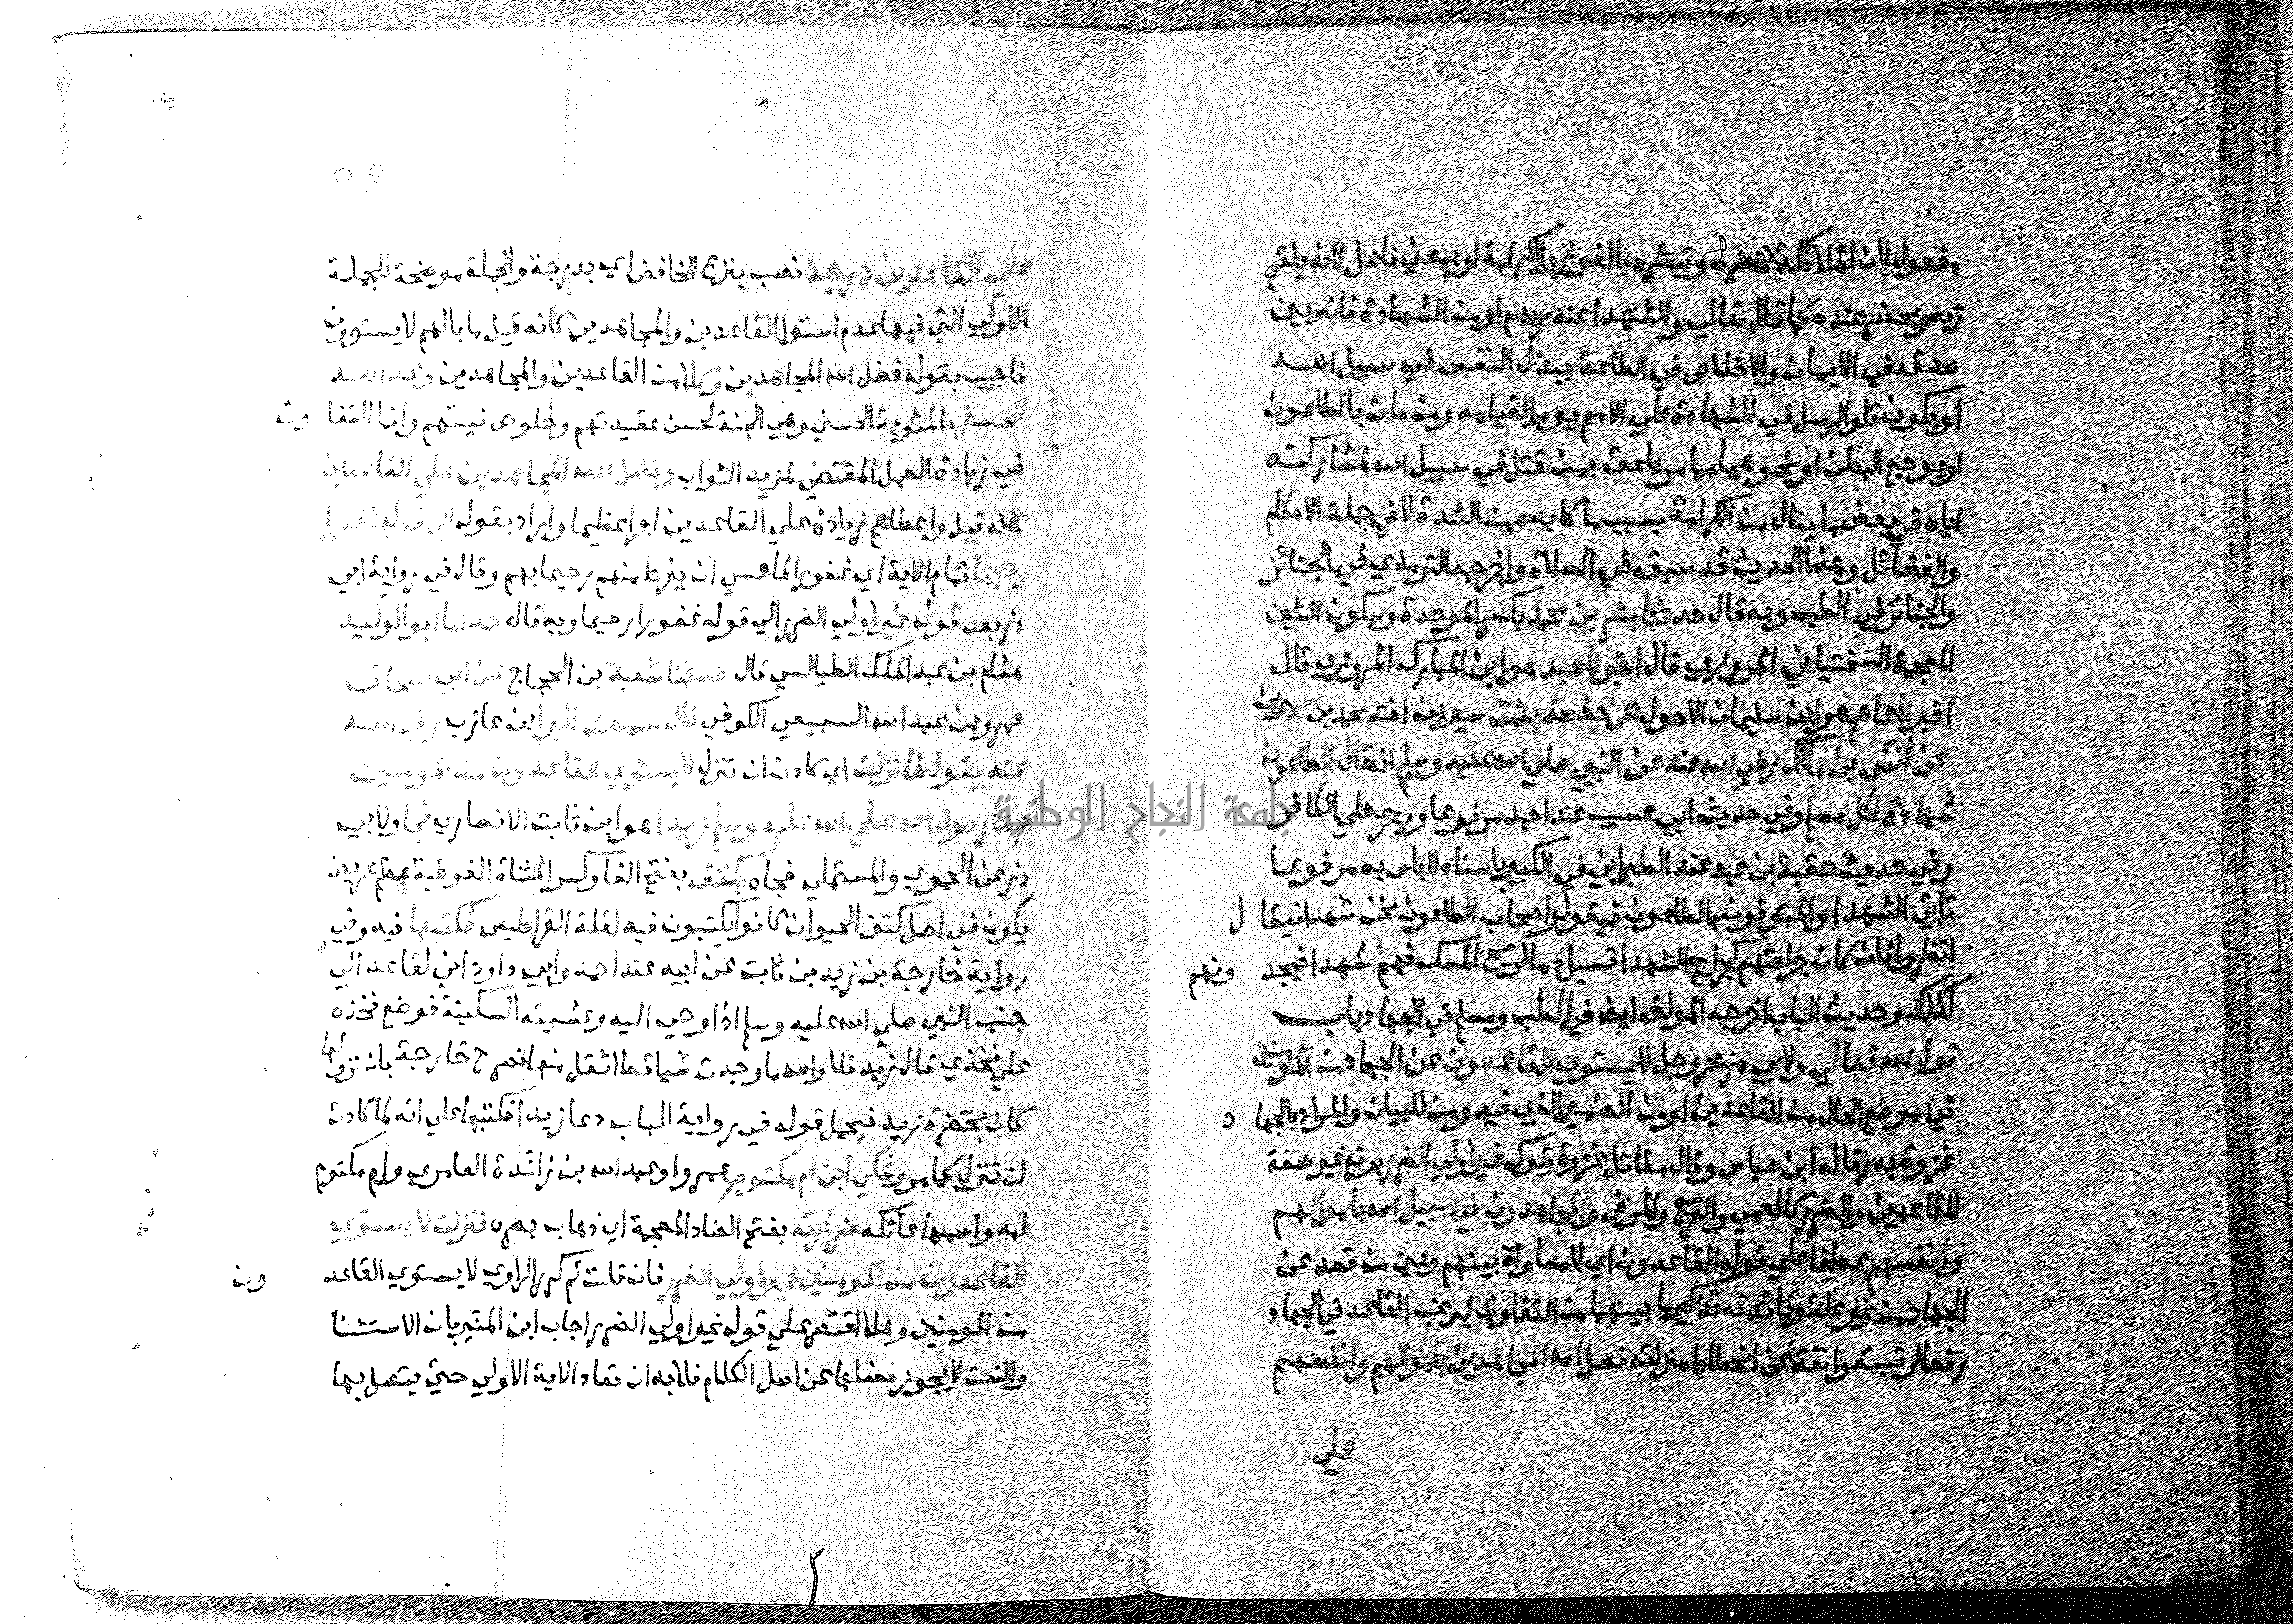 مفعول لان الملائكة تحضره وتبشره بالفوز والكرامة او بمعني فاعل لانه يلقي
ربه ويحضر عنده كما قال تعالي والشهدا عند ربهم او من الشهادة فانه بين
صدقه في الايمان والاخلاص في الطاعة ببذل النفس في سبيل الله
او يكون تلو الرسل في الشهادة علي الامم يوم القيامه ومن مات بالطاعون
او بوجع البطن او نحوهما مما مر يلحق بمن قتل في سبيل الله لمشاركته
اياه في بعض ما ينال من الكرامة بسبب ما كابده من الشدة لا في جملة الاحكام
والفضائل وهذا الحديث قد سبق في الصلاة واخرجه الترمذي في الجنائز
والجنائز في الطب وبه قال حدثنا بشر بن محمد بكسر الموحدة وسكون الشين
المعجمة السختياني المروزي قال اخبرنا عبد هو ابن المبارك المروزي قال
اخبرنا عاصم هو ابن سليمان الاحول عن حفصة بنت سيرين اخت محمد بن سيرين
عن انس بن مالك رضي الله عنه عن النبي صلي الله عليه وسلم انه قال الطاعون
شهادة لكل مسلم وفي حديث ابي عسيب عند احمد مرفوعا ورجز علي الكافر
وفي حديث عتبة بن عبد عند الطبراني في الكبير باسناد لا باس به مرفوعا
ياتي الشهدا والمتوفون بالطاعون فيقول اصحاب الطاعون نحن شهدا فيقال
انظروا فان كان جراحتهم كجراح الشهدا تسيل دما كريح المسك فهم شهدا فيجدونهم
كذلك وحديث الباب اخرجه المولف ايضا في الطب ومسلم في الجهاد باب
قول الله تعالي ولابي ذر عز وجل لا يستوي القاعدون عن الجهاد من المومنين
في موضع الحال من القاعدين او من الضمير الذي فيه ومن للبيان والمراد بالجهاد
غزوة بدر قاله ابن عباس وقال مقاتل غزوة تبوك غير اولي الضرر برفع غير صفة
للقاعدين والضرر كالعمي والعرج والمرض والمجاهدون في سبيل الله باموالهم
وانفسهم عطفا علي قوله القاعدون اي لا مساواة بينهم وبين من قعد عن
الجهاد من غير علة وفائدته تذكير ما بينهما من التفاوت ليرغب القاعد في الجهاد
رفعا لرتبته وانفة عن انحطاط منزلته فضل الله المجاهدين باموالهم وانفسهم
علي
علي القاعدين درجة نصب بنزع الخافض اي بدرجة والجملة موضحة للجملة
الاولي التي فيها عدم استوا القاعدين والمجاهدين كانه قيل ما بالهم لا يستوون
فاجيب بقوله فضل الله المجاهدين وكلا من القاعدين والمجاهدين وعد الله
الحسني المثوبة الحسني وهي الجنة لحسن عقيدتهم وخلوص نيتهم وانما التفاوت
في زيادة العمل المقتضي لمزيد الثواب وفضل الله المجاهدين علي القاعدين
كانه قيل واعطاهم زيادة علي القاعدين اجرا عظيما واراد بقوله الي قوله غفورا
رحيما تمام الاية اي غفورا لما عسي ان يفرط منهم رحيما بهم وقال في رواية ابي
ذر بعد قوله غير اولي الضرر الي قوله غفورا رحيما وبه قال حدثنا ابو الوليد
هشام بن عبد الملك الطيالسي قال حدثنا شعبة بن الحجاج عن ابي اسحاق
عمرو بن عبد الله السبيعي الكوفي قال سمعت البرا ابن عازب رضي الله
عنه يقول لما نزلت اي كادت ان تنزل لا يستوي القاعدون من المومنين
دعا رسول الله صلي الله عليه وسلم زيدا هو ابن ثابت الانصاري فجا ولابي
ذر عن الحموي والمستملي فجاه بكتف بفتح الكاف وكسر المثناة الفوقية عظم عريض
يكون في اصل كتف الحيوان كانوا يكتبون فيه لقلة القراطيس فكتبها فيه وفي
رواية خارجة بن زيد بن ثابت عن ابيه عند احمد وابي داود اني لقاعد الي
جنب النبي صلي الله عليه وسلم اذ اوحي اليه وغشيته السكينة فوضع فخذه
علي فخذي قال زيد فلا والله ما وجدت شيا قط اثقل منها فصرح خارجة بان نزولها
كان بحضرة زيد فيحمل قوله في رواية الباب دعا زيدا فكتبها علي انه لما كادت
ان تنزل كما مر وشكي ابن ام مكتوم عمرو او عبد الله بن زائدة العامري وام مكتوم
امه واسمها عاتكه ضرارته بفتح الضاد المعجمة اي ذهاب بصره فنزلت لا يستوي
القاعدون من المومنين غير اولي الضرر فان قلت لم كرر الراوي لا يستوي القاعدون
من المومنين وهلا اقتصر علي قوله غير اولي الضرر اجاب ابن المنير بان الاستثنا
والنعت لا يجوز فصلهما عن اصل الكلام فلا بد ان تعاد الاية الاولي حتي يتصل بها
جامعة النجاح الوطنية